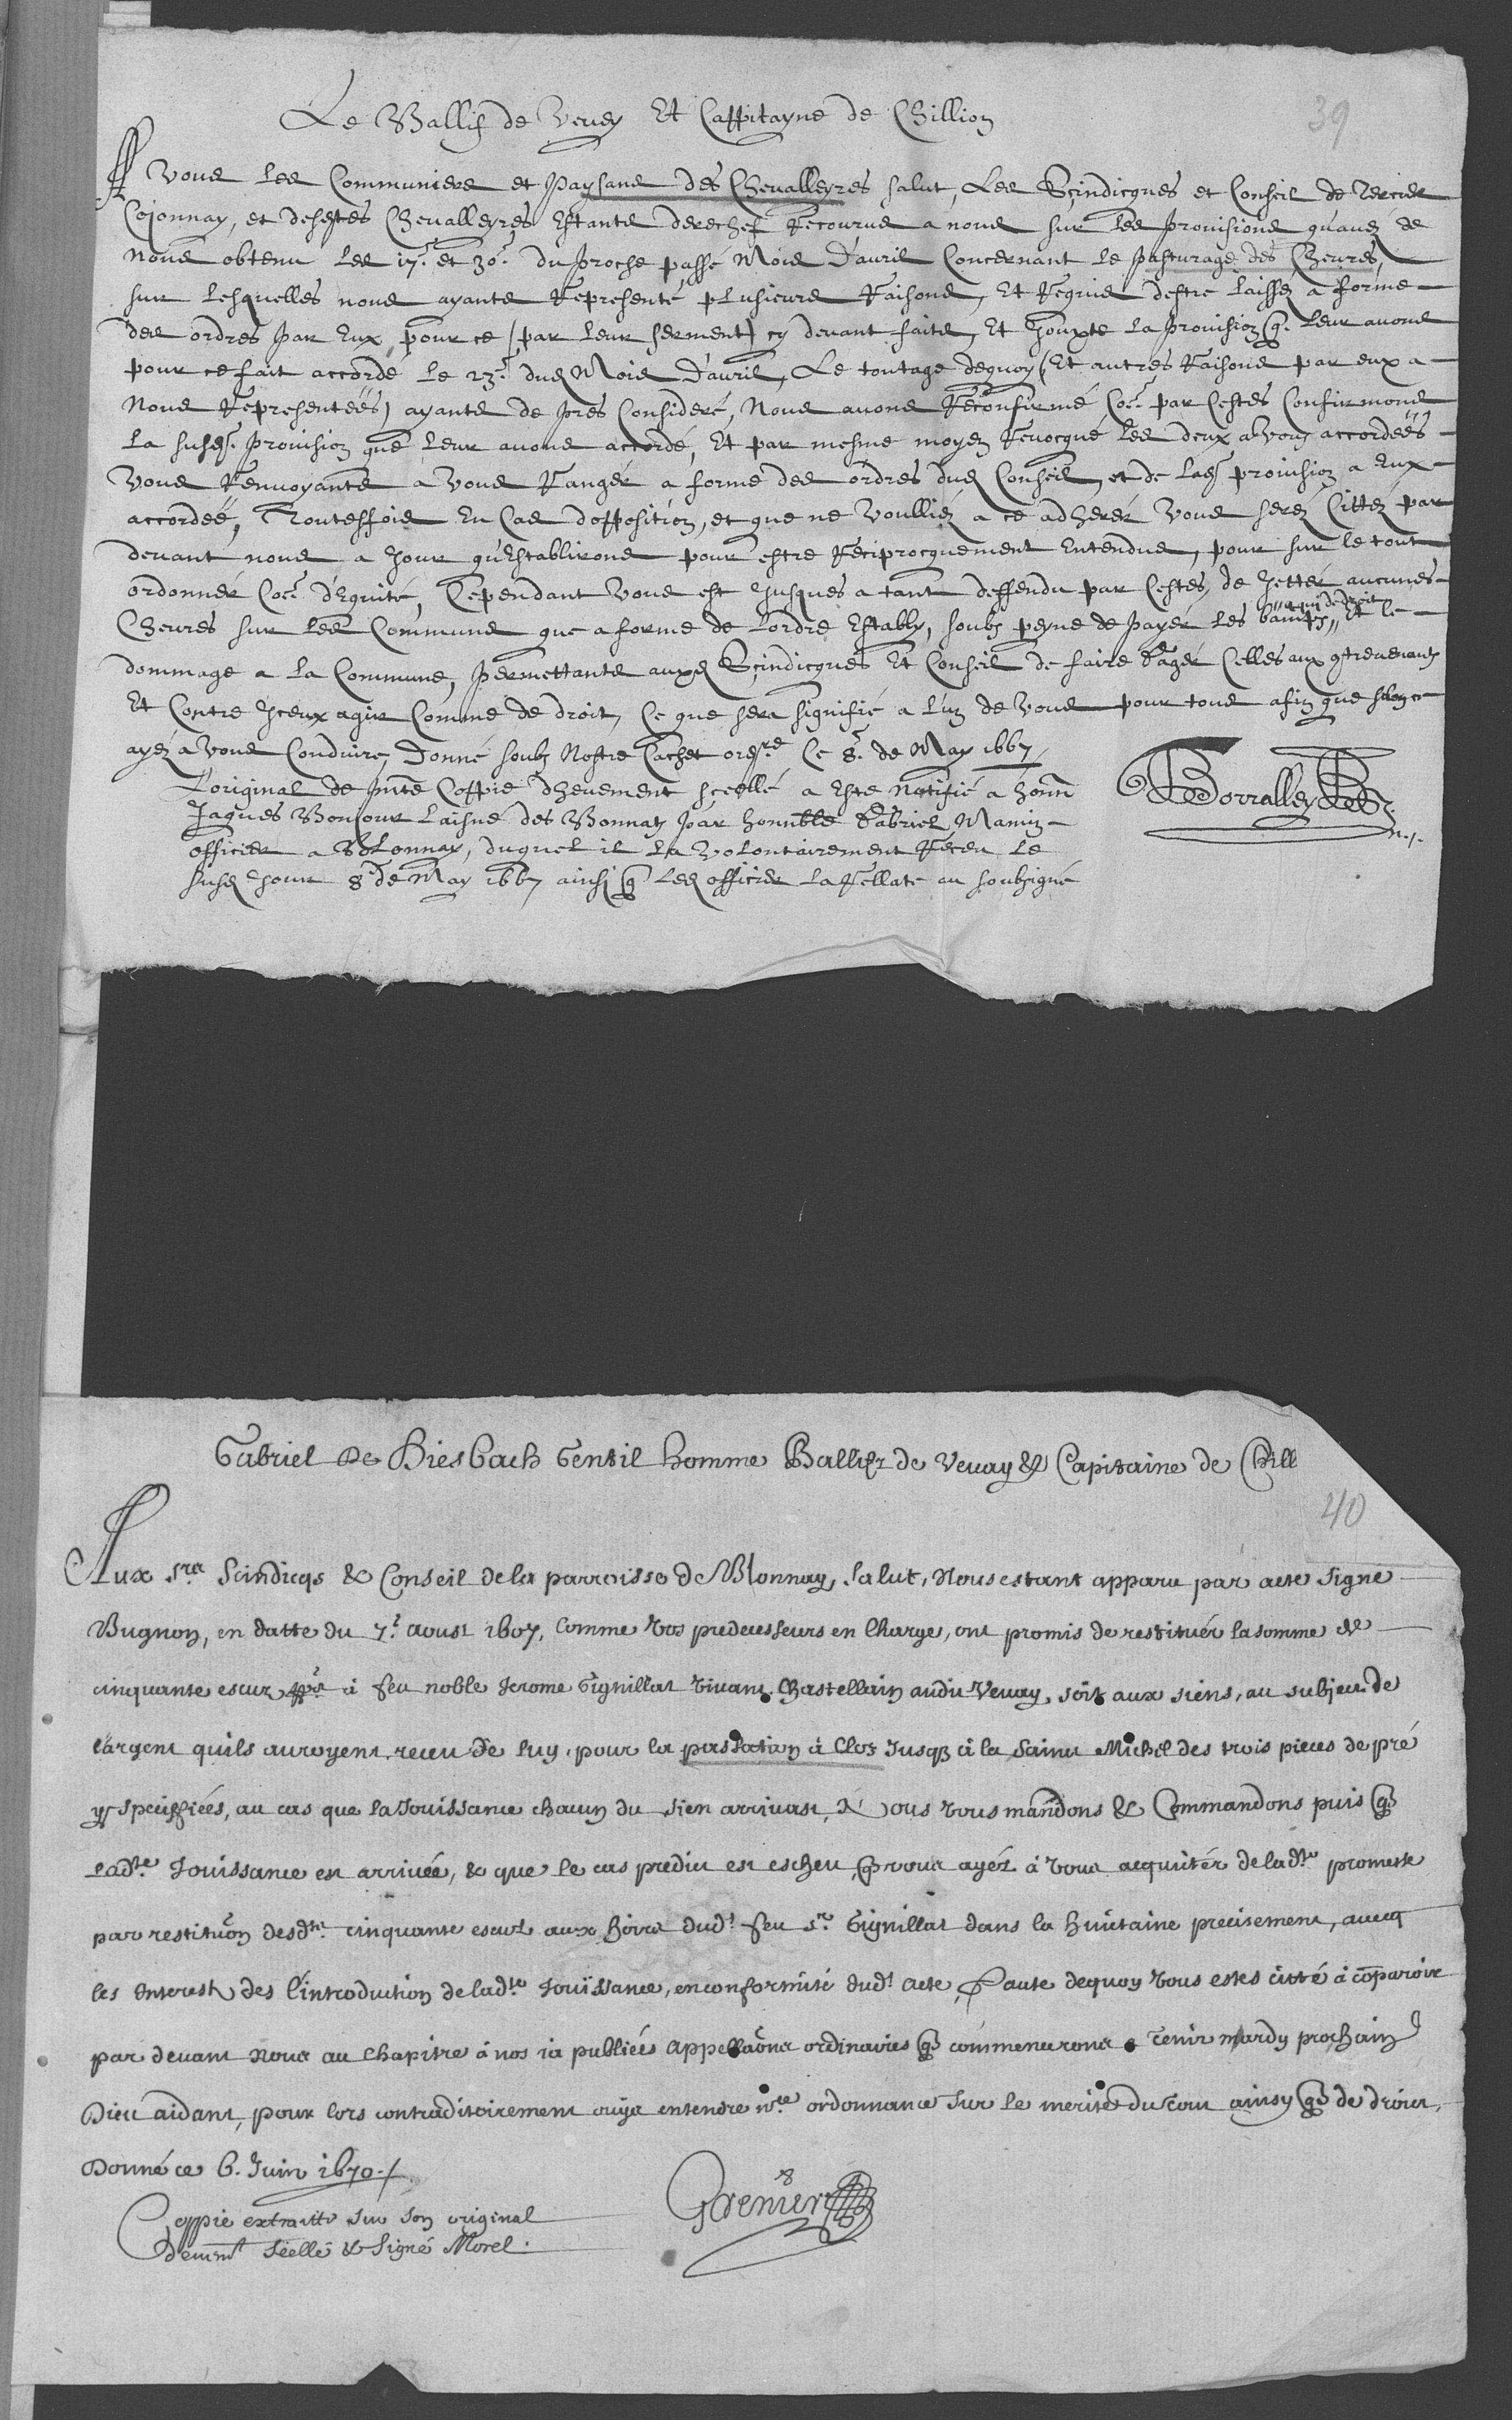 Le Ballif de Vevey Et Cappitayne de Chillion
39
A vous les Communiers et paysans des Chevalleyres salut, Les Scindicques et Conseil de Tercier
Cojonnay, et desestes Chevalleyres Estants derechef Recourus a nous sur les provisions qu'avez de
nous obtenu les 17.e et 30.e du proche passé Mois D'avril Concernant le pasturage des Chevres,
sur lesquelles nous ayants Representé plusieurs Raisons, Et Requis destre laissez a forme
des ordres par Eux pour ce (par leur serment) cy devant faits, Et Jouxte la provision q. leur avons
pour ce fait accordé le 23.e dud Mois D'avril, Le toutage dequoy (Et autres Raisons par eux a
Nous Representéës) ayants de pres Consideré, Nous avons Reconfirmé Coe. par Cestes Confirmons
la susd. provision que leur avons accordé, Et par mesme moyen Revocqué les deux a vous accordéës
Vous Renvoyants a vous Rangér a forme des ordres dud Conseil, et de lad provision a Eux
accordeë, Touteffois En Cas dopposition, et que ne voulliéz a ce adherér vous seréz Cittéz par
devant nous a Jour qu'Establirons pour estre Reciprocquement Entendus, pour sur le tout
ordonnér Coe. d'Equité, Cependant vous est Jusques a tant deffendu par Cestes, de Jettér aucunes
Chevres sur les Communs que a forme de l'ordre Estably, soubz peyne de payér les bamps, a qui de droit Et le
dommage a la Commune, permettants auxd Scindicques Et Conseil de faire Gagér Celles aux contrevenants
Et Contre Iceux agir Comme de droit, Ce que sera signifié a l'un de vous pour tous afin que selon ce
ayéz a vous Conduire, Donné soubz Nostre Cachet ord.re Ce 8.e de May 1667
L'original de pnte Coppie dhevement sceellé a Este notifié a honn
Jaques Bonjour laisné des Bonnatz par honnble Gabriel Mamin
officier a Blonnay, duquel il la volontairement Receu le
susd Jour 8.e de May 1667 ainsi q led officier la Rellaté au soubsigné
Dorralley
Gabriel De Diesbach Gentil homme Ballifz de Vevay & Capitaine de Chill
40
Aux srs Scindicqs & Conseil de la parroisse de Blonnay, Salut, Nous estant apparu par acte signé
Bugnon, en datte du 7.e aoust 1607, Comme vos predecesseurs en Charge, ont promis de restituér la somme de
cinquante escuz à feu noble Jerome Gignillat vivant Chastellain audit Vevay, soit aux siens, au subject de
l'argent quils auroyent receu de luy, pour la passation à Cloz Jusq à la Saint Michel des trois pieces de pré
y speciffiées, au cas que la Jouissance chacun du sien arrivast, Nous vous mandons & Commandons puis q
lad.te Jouissance est arrivée, & que le cas predict est escheu, q vous ayéz à vous acquitér de lad.te promesse
par restituon desd.ts cinquante escuz aux hoirs dud.t feu s.r Gignillat dans la huictaine precisement, avecq
les Interests des l'introduction de lad.te Jouissance, en conformité dud.t acte, Faute dequoy vous estes citté à comparoir
par devant Nous au Chapitre à nos ja publiées appellaons ordinaires q commencerons a tenir mardy prochain
Dieu aidant, pour lors contradictoirement ouys entendre n.re ordonnance sur le merite du tout ainsy q de droict,
Donné ce 6. Juin 1670.
Grenier
Coppie extraitte sur son original
deuem.t séellé & signé Morel.